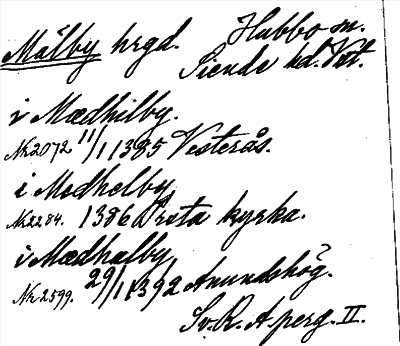 Målby hrgd. Hubbo sn.
Siende hd. Vst.
i Mædhilby.
Nr 2072 11/1 1385 Vesterås.
i Medhelby
Nr 2284. 1386 Prosta kyrka.
i Mædhælby
Nr 2599. 29/1 1392 Anundshög.
Sv. R. A. perg. II.